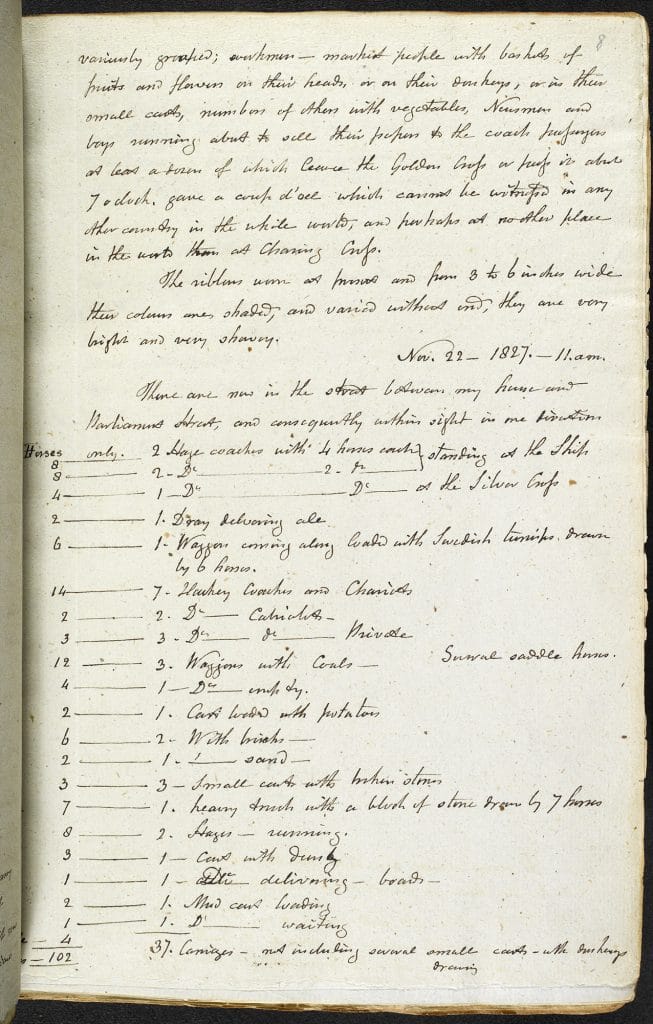 8
variously grouped; workmen — market people with baskets of
fruits and flowers on their heads, or on their donkeys, or in their
small carts, numbers of others with vegetables, Newsmen and
boys running about to sell their papers to the coach passengers
at least a dozen of which leave the Golden Cross or pass it about
7 o clock, gave a coup d'oeil which cannot be witnessed in any
other country in the whole world, and perhaps at no other place
in the world than at Charing Cross.
The ribbons worn at present are from 3 to 6 inches wide
their colours are shaded, and varied without end, they are very
bright and very shewey.
Nov. 22 — 1827. — 11. am.
There are now in the street between my house and
Parliament Street, and consequently within sight in one direction
only.
Horses
8 — 2 Stage coaches with 4 horses each } standing at the Ship
8 — 2 — Do — 2 — do
4 — 1 — Do — Do — at the Silver Cross
2 — 1. Dray delivering ale
6 — 1. Waggon coming along loaded with Swedish turnips. drawn
by 6 horses.
14 — 7. Hackney Coaches and Chariots
2 — 2. Do — Cabriolets —
3 — 3 — Do — do — Private
12 — 3. Waggons with Coals — Several saddle horses.
4 — 1 — Do — empty.
2 — 1. Cart loaded with potatoes
6 — 2 — With bricks —
2 — 1. — sand —
3 — 3 — Small carts with broken stones
7 — 1. heavy truck with a block of stone drawn by 7 horses
8 — 2. Stages — running.
3 — 1 — Cart with dung
1 — 1 — delivering — boards —
2 — 1. Mud cart loading
1 — 1. Do — waiting
4
102 37. Carriages — not including several small carts — with donkeys
drawing